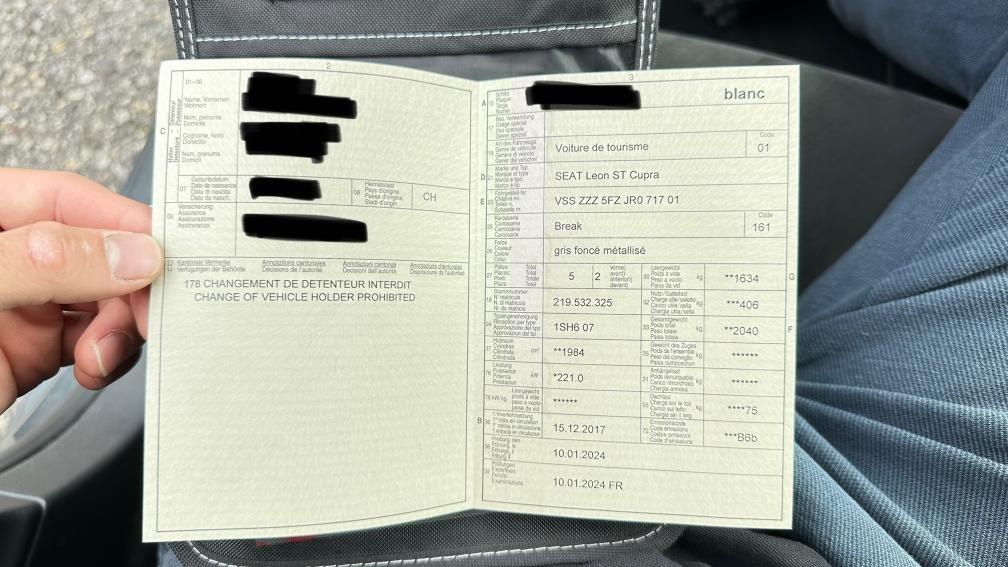 2
01-06
Name, Vornamen
Wohnort
Nom, prénoms
Domicile
Cognome, nomi
Domicilio
Num, prenums
Domicil
C
07
Geburtsdatum
Date de naissance
Data di nascita
Data da nasch.
08
Heimatstaat
Pays d'origine
CH
09
Versicherung
Assurance
Assicurazione
Assicuranza
Kantonale Vermerke
Verfügungen der Behörde
Annotations cantonales
Décisions de l'autorité
Annotazioni cantonali
Decisioni dell'autorità
178 CHANGEMENT DE DETENTEUR INTERDIT
CHANGE OF VEHICLE HOLDER PROHIBITED
3
A
Schild
Plaque
Targa
blanc
Bes. Verwendung
Usage spécial
Uso speciale
Diever spezial
Art des Fahrzeugs
Genre de véhicule
Genere di veicolo
Gener del vehichel
Voiture de tourisme
Code
01
D
Marke und Typ
Marque et type
Marca e tipo
SEAT Leon ST Cupra
E
Fahrgestell-Nr.
Châssis no
Telaio n.
VSS ZZZ 5FZ JR0 717 01
Karosserie
Carrosserie
Carrozzeria
Break
Code
161
Farbe
Couleur
Colore
Color
gris foncé métallisé
27
Plätze: Total
Places: Total
Posti: Totale
Plazs: Total
5
2
vorne)
avant)
anteriori)
davant)
30
Leergewicht
Poids à vide
Peso a vuoto
Paisa da vid
kg
**1634
G
18
Stammnummer
N° matricule
N. di matricola
Nr. da matricla
219.532.325
32
Nutz-/Sattellast
Charge utile/sellette
Carico utile/sella
kg
***406
24
Typengenehmigung
Réception par type
Approvazione del tipo
1SH6 07
33
Gesamtgewicht
Poids total
Peso totale
Paisa totala
kg
**2040
F
37
Hubraum
Cylindrée
Cilindrata
cm³
**1984
35
Gewicht des Zuges
Poids de l'ensemble
Peso del convoglio
kg
******
76
Leistung
Puissance
Potenza
Prestaziun
kW
*221.0
31
Anhängelast
Poids remorquable
Carico rimorchiato
kg
******
78
kW/kg
Leergewicht
poids à vide
peso a vuoto
paisa da vid
******
55
Dachlast
Charge sur le toit
Carico sul tetto
kg
****75
B
36
1. Inverkehrsetzung
1re mise en circulation
15.12.2017
72
Emissionscode
Code émissions
Codice emissioni
***B6b
38
Freiburg, den
Fribourg, le
10.01.2024
39
Prüfungen
Expertises
Perizie
Examinaziuns
10.01.2024 FR